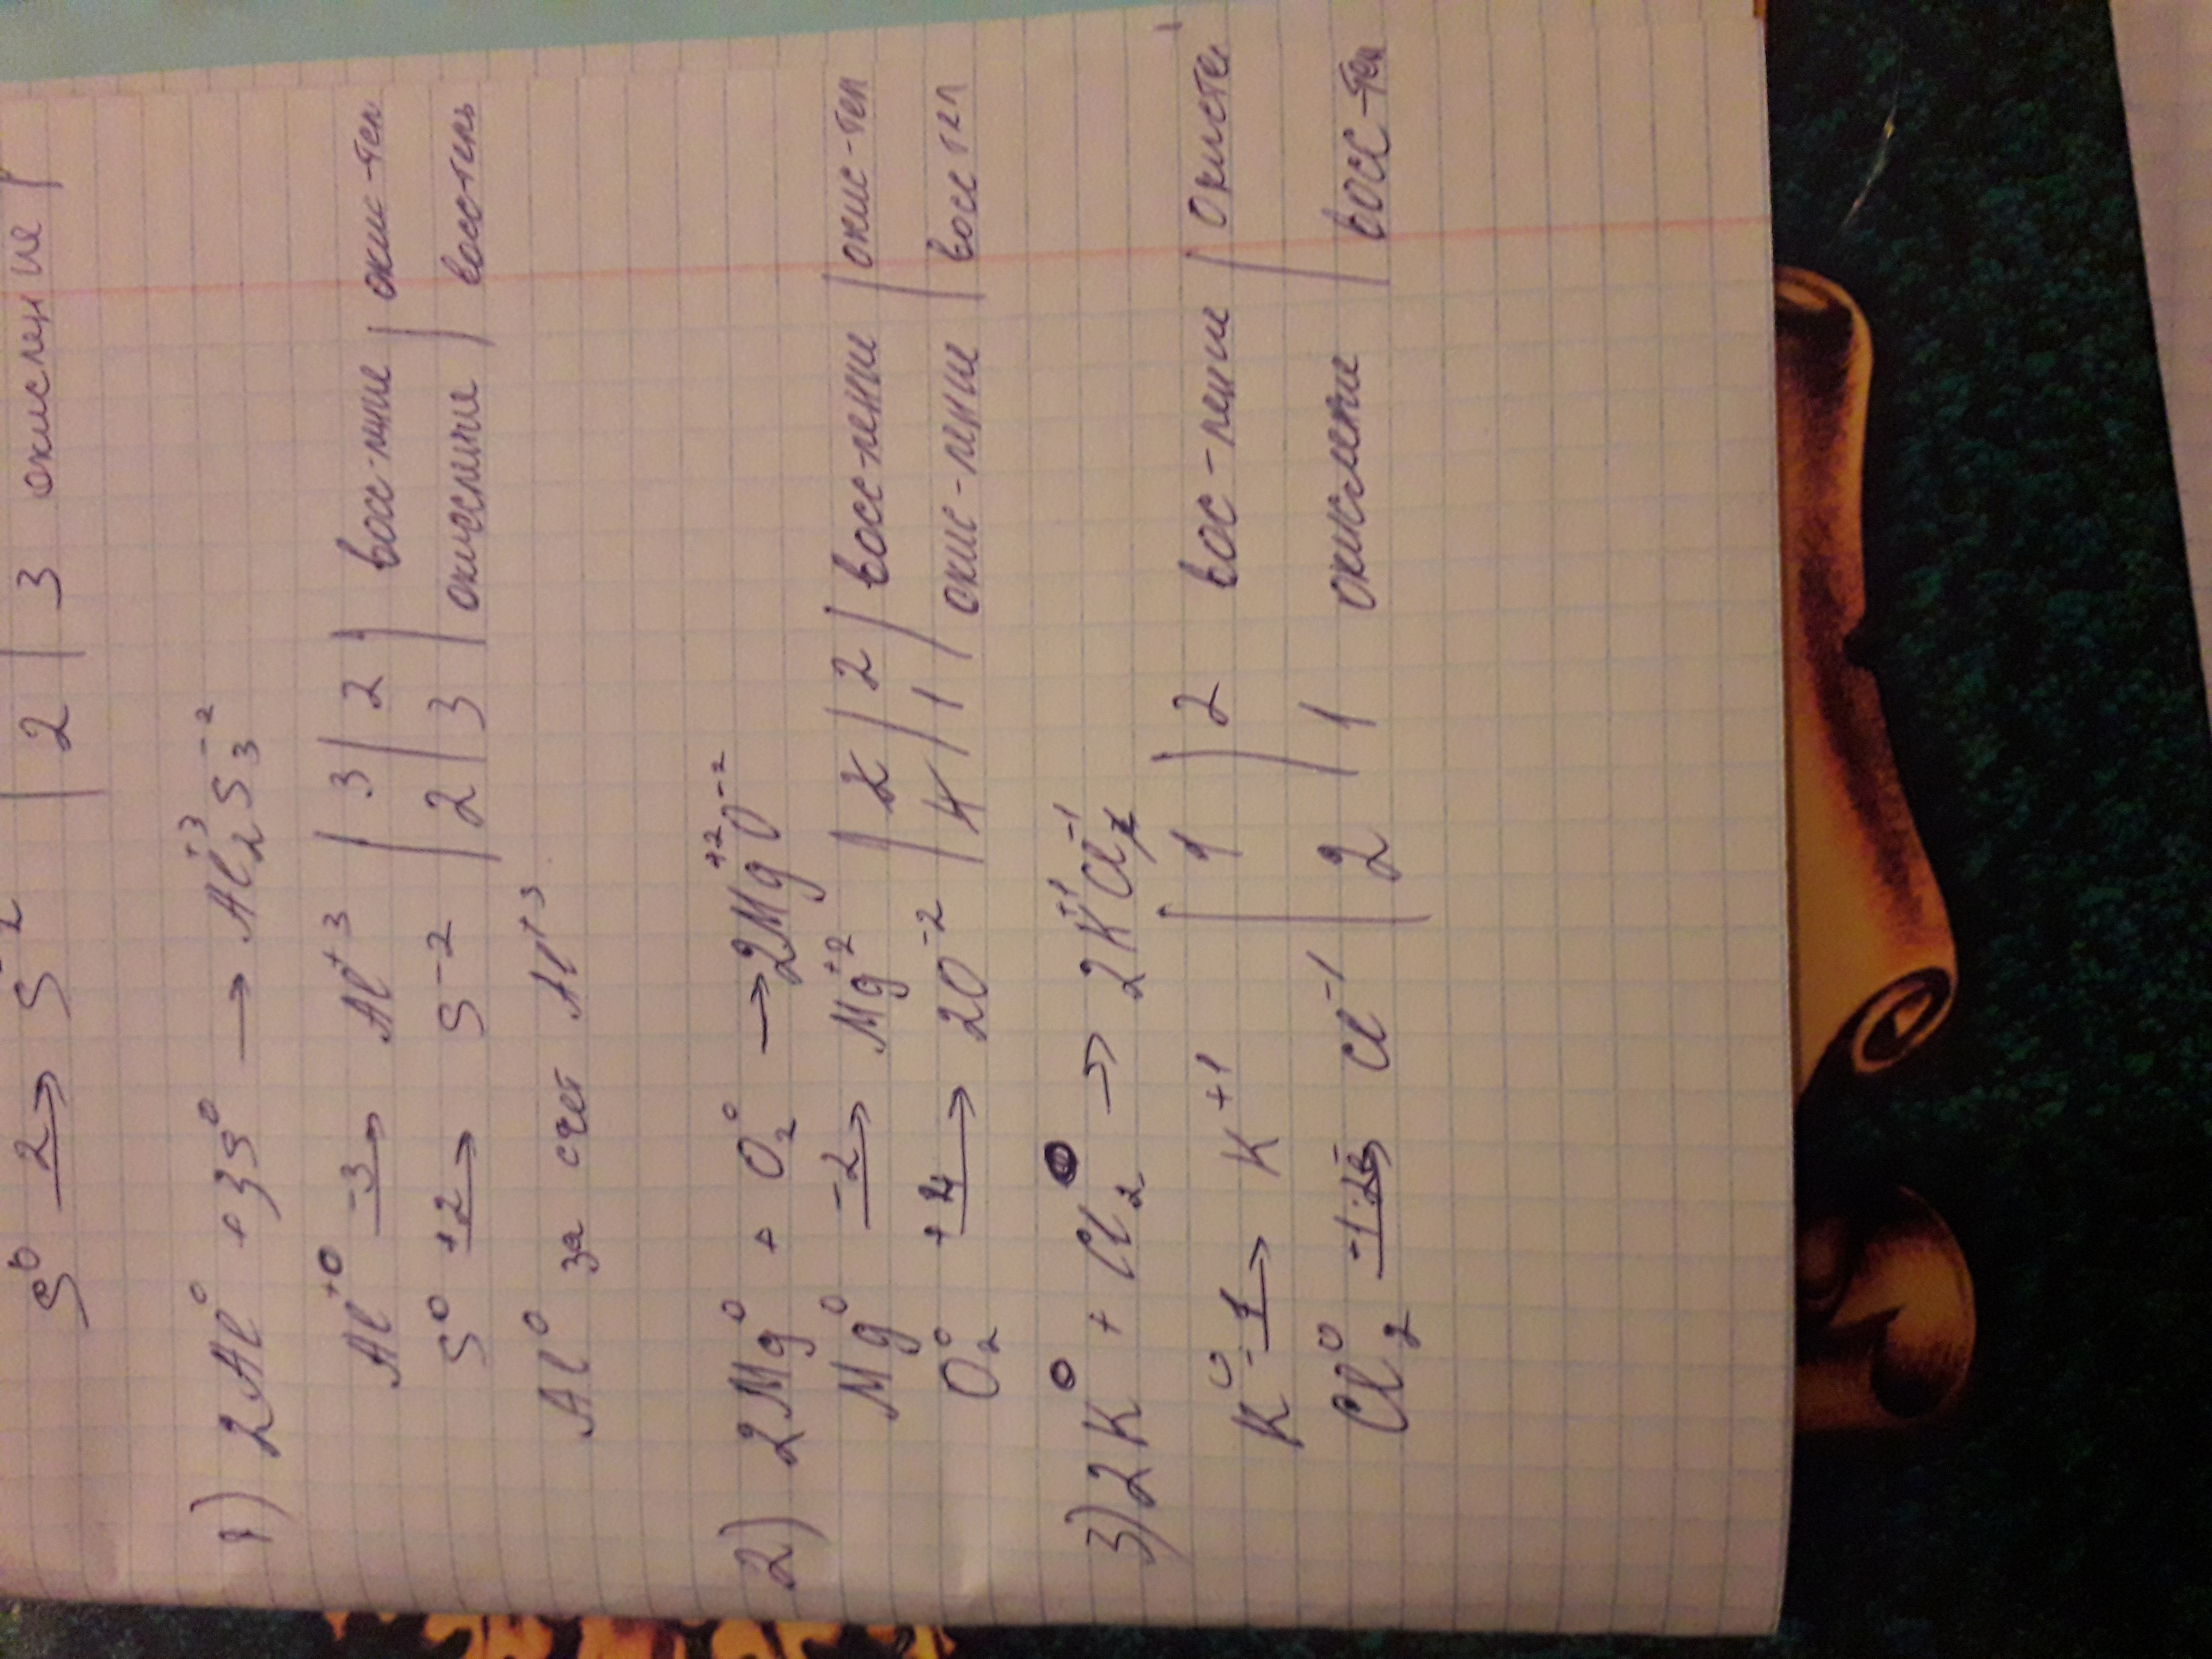 S⁰ 2→ S⁻² | 2 | 3 окисление
1) 2Al⁰ + 3S⁰ → Al₂⁺³S₃⁻²
Al⁺⁰ -3→ Al⁺³ | 3 | 2 | восс-ние | окис-тел
S⁰ +2→ S⁻² | 2 | 3 | окисление | восстель
Al⁰ за счет Al⁺³
2) 2Mg⁰ + O₂⁰ → 2Mg⁺²O⁻²
Mg⁰ -2→ Mg⁺² | 2 | 2 | восс-ление | окис-тел
O₂⁰ +4→ 2O⁻² | 4 | 1 | окис-ление | восстел
3) 2K⁰ + Cl₂⁰ → 2K⁺¹Cl⁻¹
K⁰ -1→ K⁺¹ | 1 | 2 вос-ление | окисте
Cl₂⁰ -1·2e→ Cl⁻¹ | 2 | 1 окисление | восс-тел